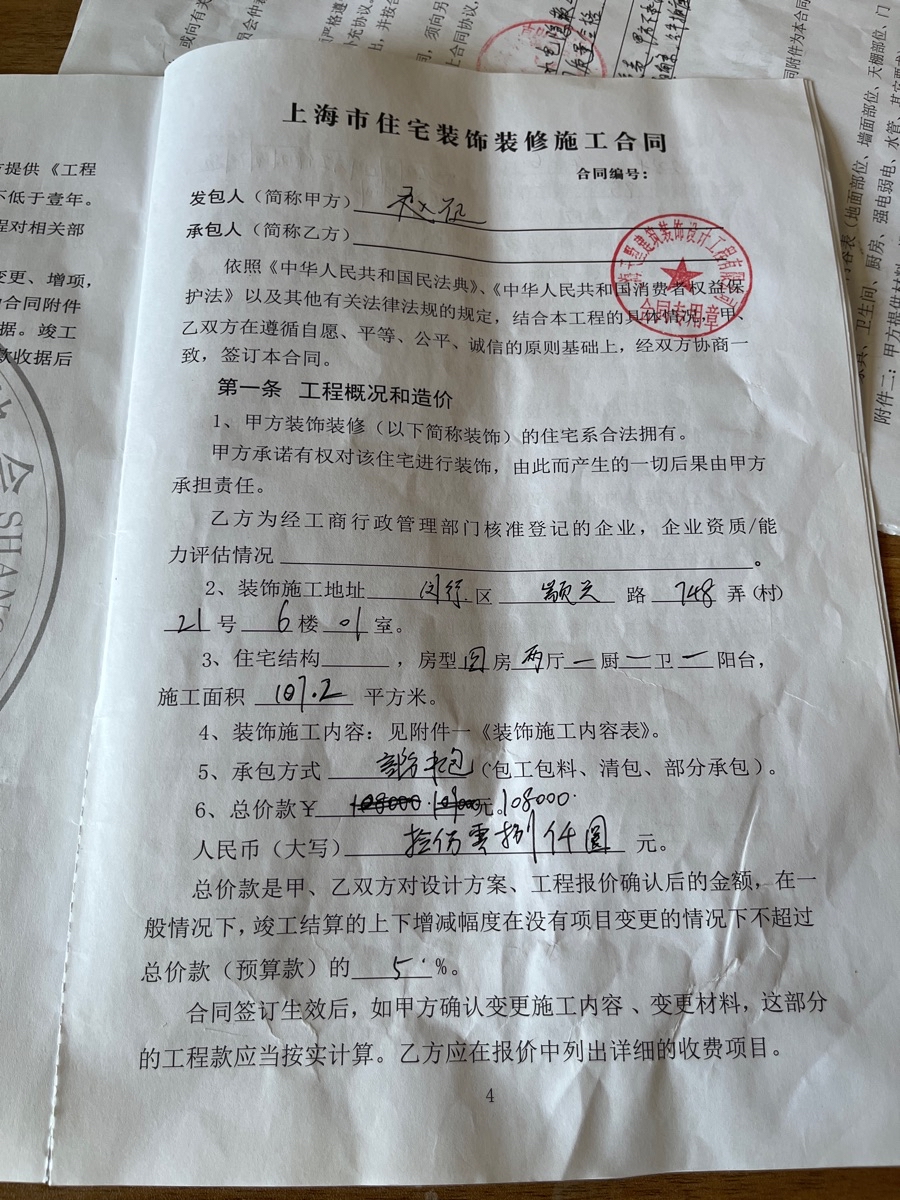 上海市住宅装饰装修施工合同
合同编号：
发包人（简称甲方）
承包人（简称乙方）
合同专用章
依照《中华人民共和国民法典》、《中华人民共和国消费者权益保
护法》以及其他有关法律法规的规定，结合本工程的具体情况，甲、
乙双方在遵循自愿、平等、公平、诚信的原则基础上，经双方协商一
致，签订本合同。
第一条 工程概况和造价
1、甲方装饰装修（以下简称装饰）的住宅系合法拥有。
甲方承诺有权对该住宅进行装饰，由此而产生的一切后果由甲方
承担责任。
乙方为经工商行政管理部门核准登记的企业，企业资质/能
力评估情况 。
2、装饰施工地址 闵行 区 颛兴 路 748 弄（村）
21 号 6 楼 01 室。
3、住宅结构 ，房型 房 两 厅 一 厨 一 卫 一 阳台，
施工面积 107.2 平方米。
4、装饰施工内容：见附件一《装饰施工内容表》。
5、承包方式 部分承包（包工包料、清包、部分承包）。
6、总价款￥ 元。108000
人民币（大写） 拾佰零捌仟圆 元。
总价款是甲、乙双方对设计方案、工程报价确认后的金额，在一
般情况下，竣工结算的上下增减幅度在没有项目变更的情况下不超过
总价款（预算款）的 5 %。
合同签订生效后，如甲方确认变更施工内容、变更材料，这部分
的工程款应当按实计算。乙方应在报价中列出详细的收费项目。
4
方提供《工程
不低于壹年。
程对相关部
变更、增项，
合同附件
据。竣工
款收据后
会
SHANG